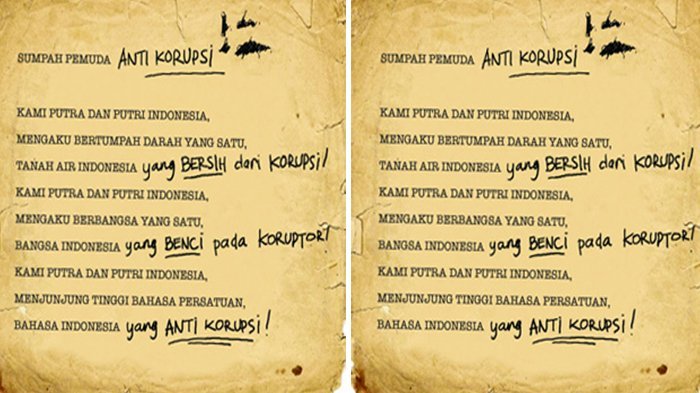 SUMPAH PEMUDA ANTI KORUPSI !
KAMI PUTRA DAN PUTRI INDONESIA,
MENGAKU BERTUMPAH DARAH YANG SATU,
TANAH AIR INDONESIA yang BERSIH dari KORUPSI!
KAMI PUTRA DAN PUTRI INDONESIA,
MENGAKU BERBANGSA YANG SATU,
BANGSA INDONESIA yang BENCI pada KORUPTOR!
KAMI PUTRA DAN PUTRI INDONESIA,
MENJUNJUNG TINGGI BAHASA PERSATUAN,
BAHASA INDONESIA yang ANTI KORUPSI!
SUMPAH PEMUDA ANTI KORUPSI !
KAMI PUTRA DAN PUTRI INDONESIA,
MENGAKU BERTUMPAH DARAH YANG SATU,
TANAH AIR INDONESIA yang BERSIH dari KORUPSI!
KAMI PUTRA DAN PUTRI INDONESIA,
MENGAKU BERBANGSA YANG SATU,
BANGSA INDONESIA yang BENCI pada KORUPTOR!
KAMI PUTRA DAN PUTRI INDONESIA,
MENJUNJUNG TINGGI BAHASA PERSATUAN,
BAHASA INDONESIA yang ANTI KORUPSI!